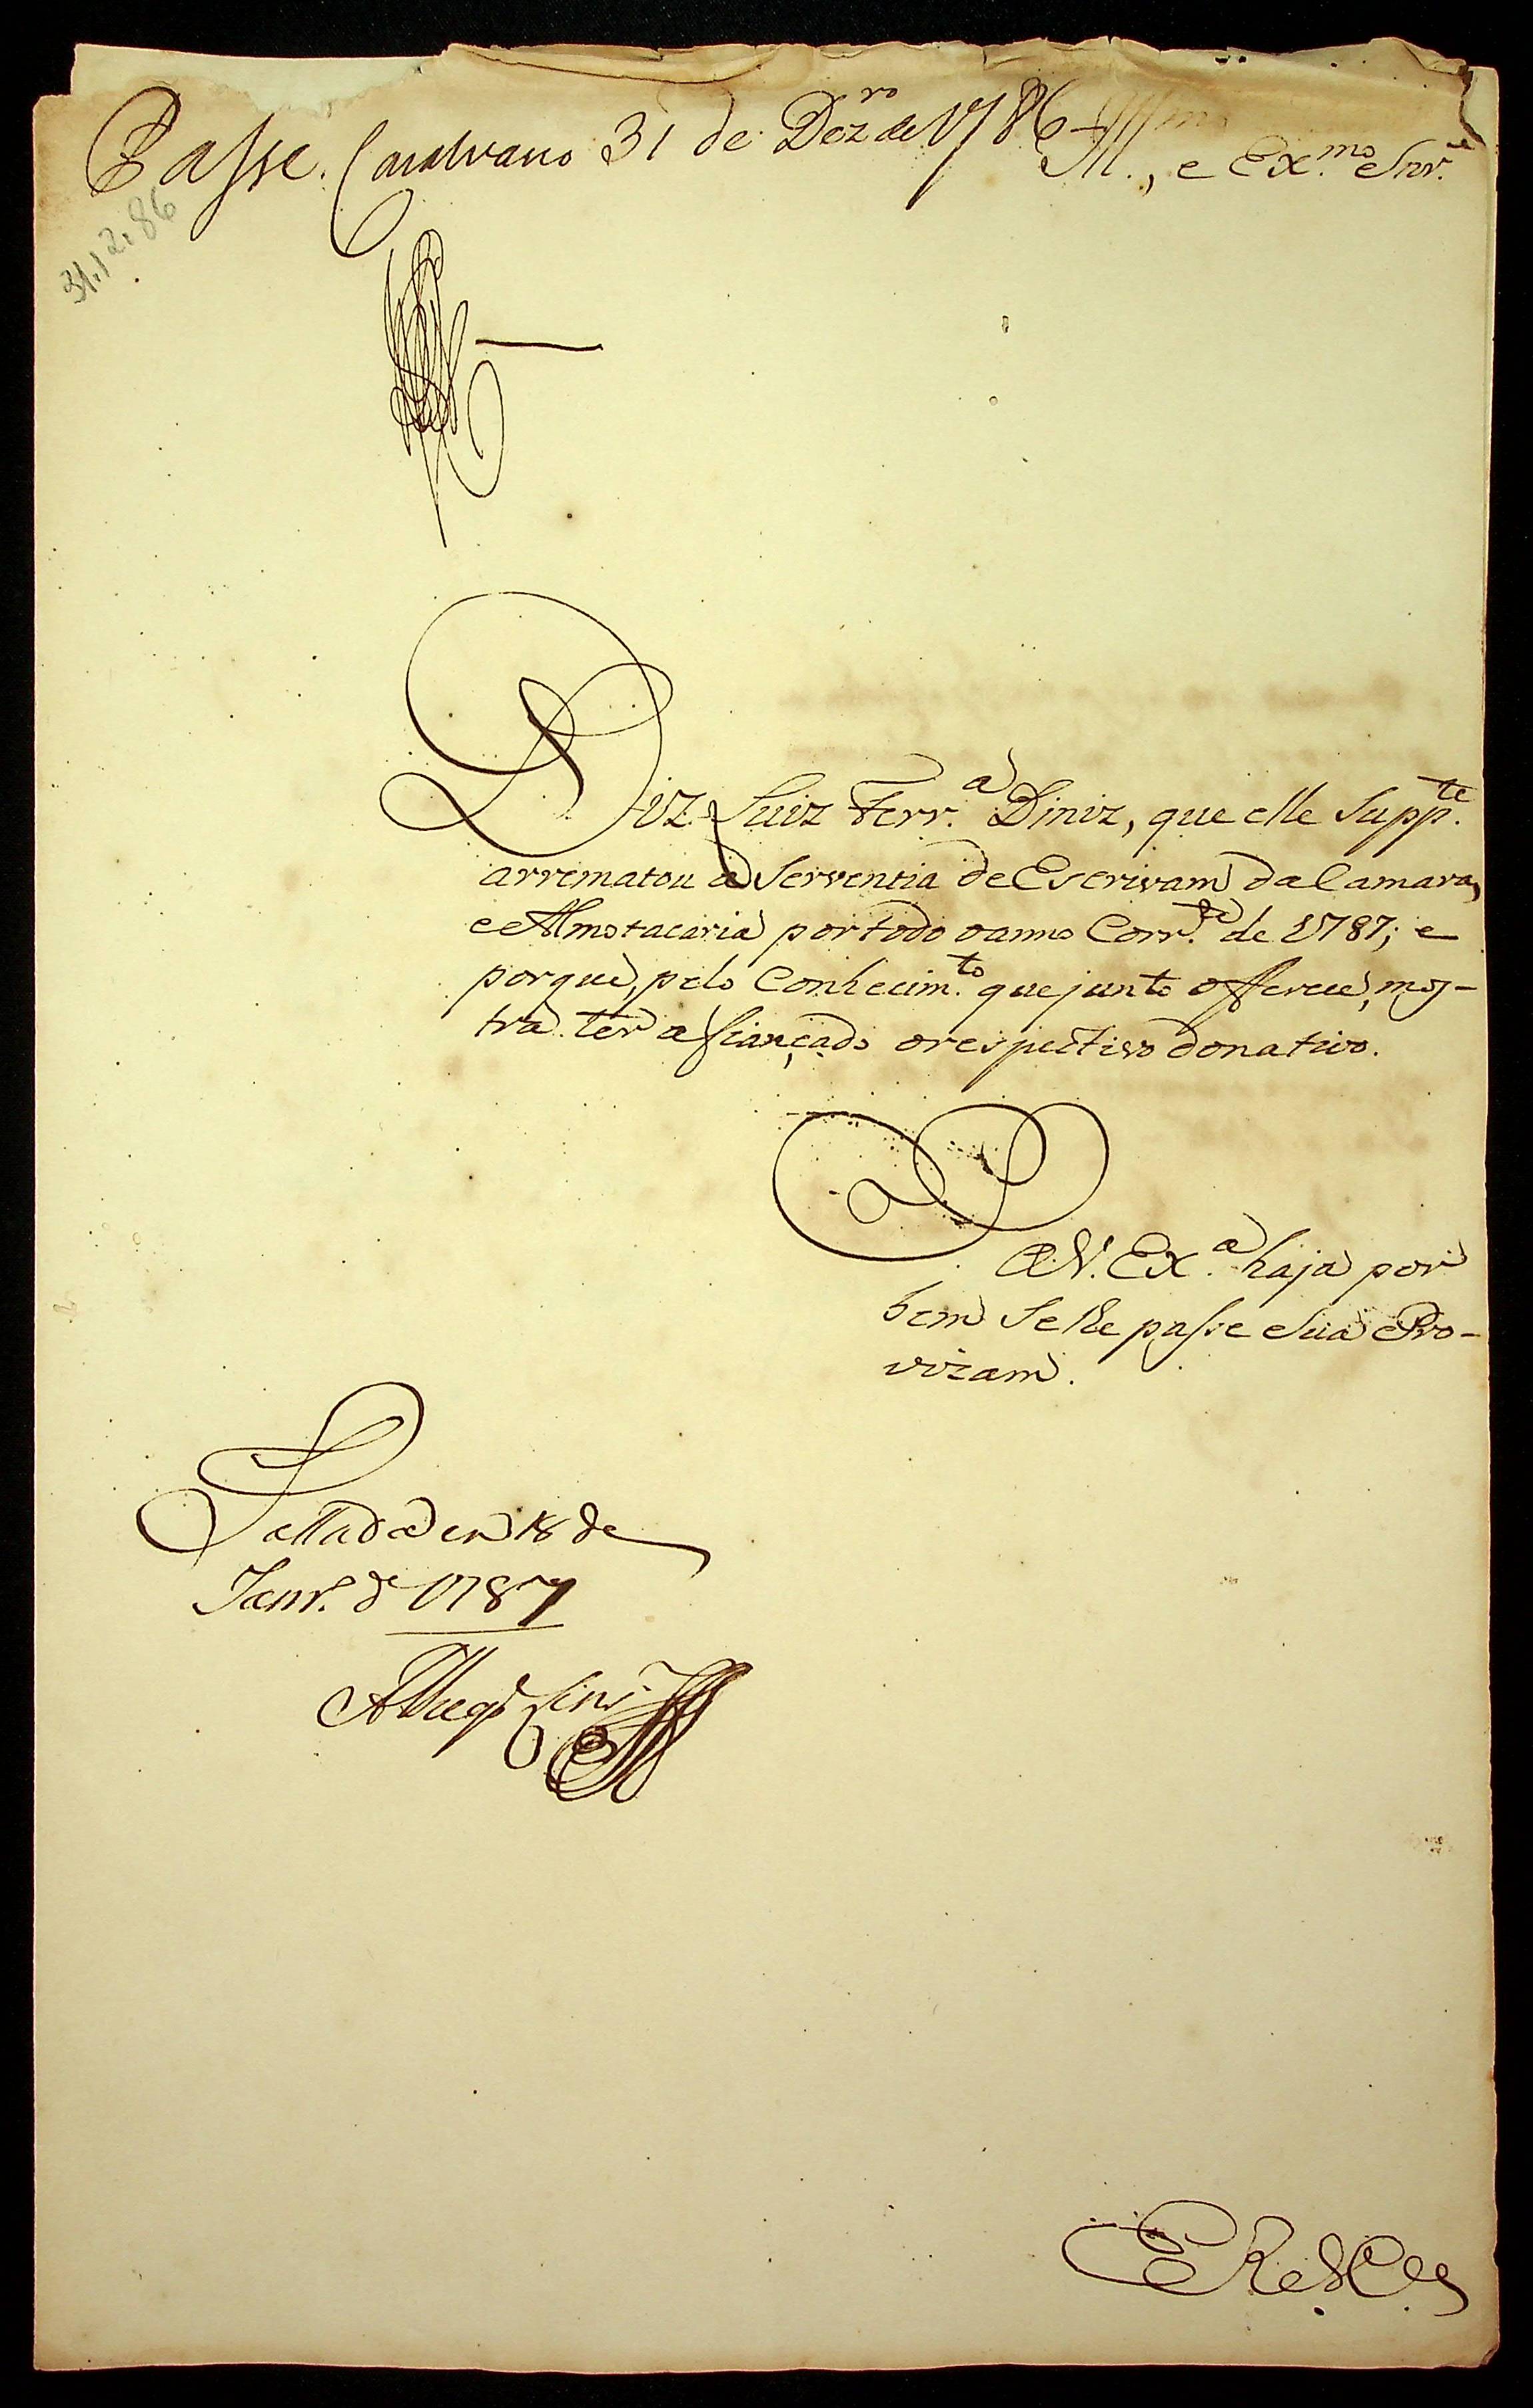 Passe. 31 de Dezro de 1786
Ill., e Exmo Snr.
31.12.86
Diz Luiz Ferr.a Diniz, que elle Supp.te
arrematou a Serventia de Escrivam da Camara,
e Almotacaria por todo o anno Corr.te de 1787; e
porque, pelo Conhecim.to que junto offerece, mos-
tra ter afiançado o respectivo donativo.
P
A V. Ex.a haja por
bem Se lhe passe Sua Pro-
vizam.
em 18 de
Janr.o de 1787
E R M.ce